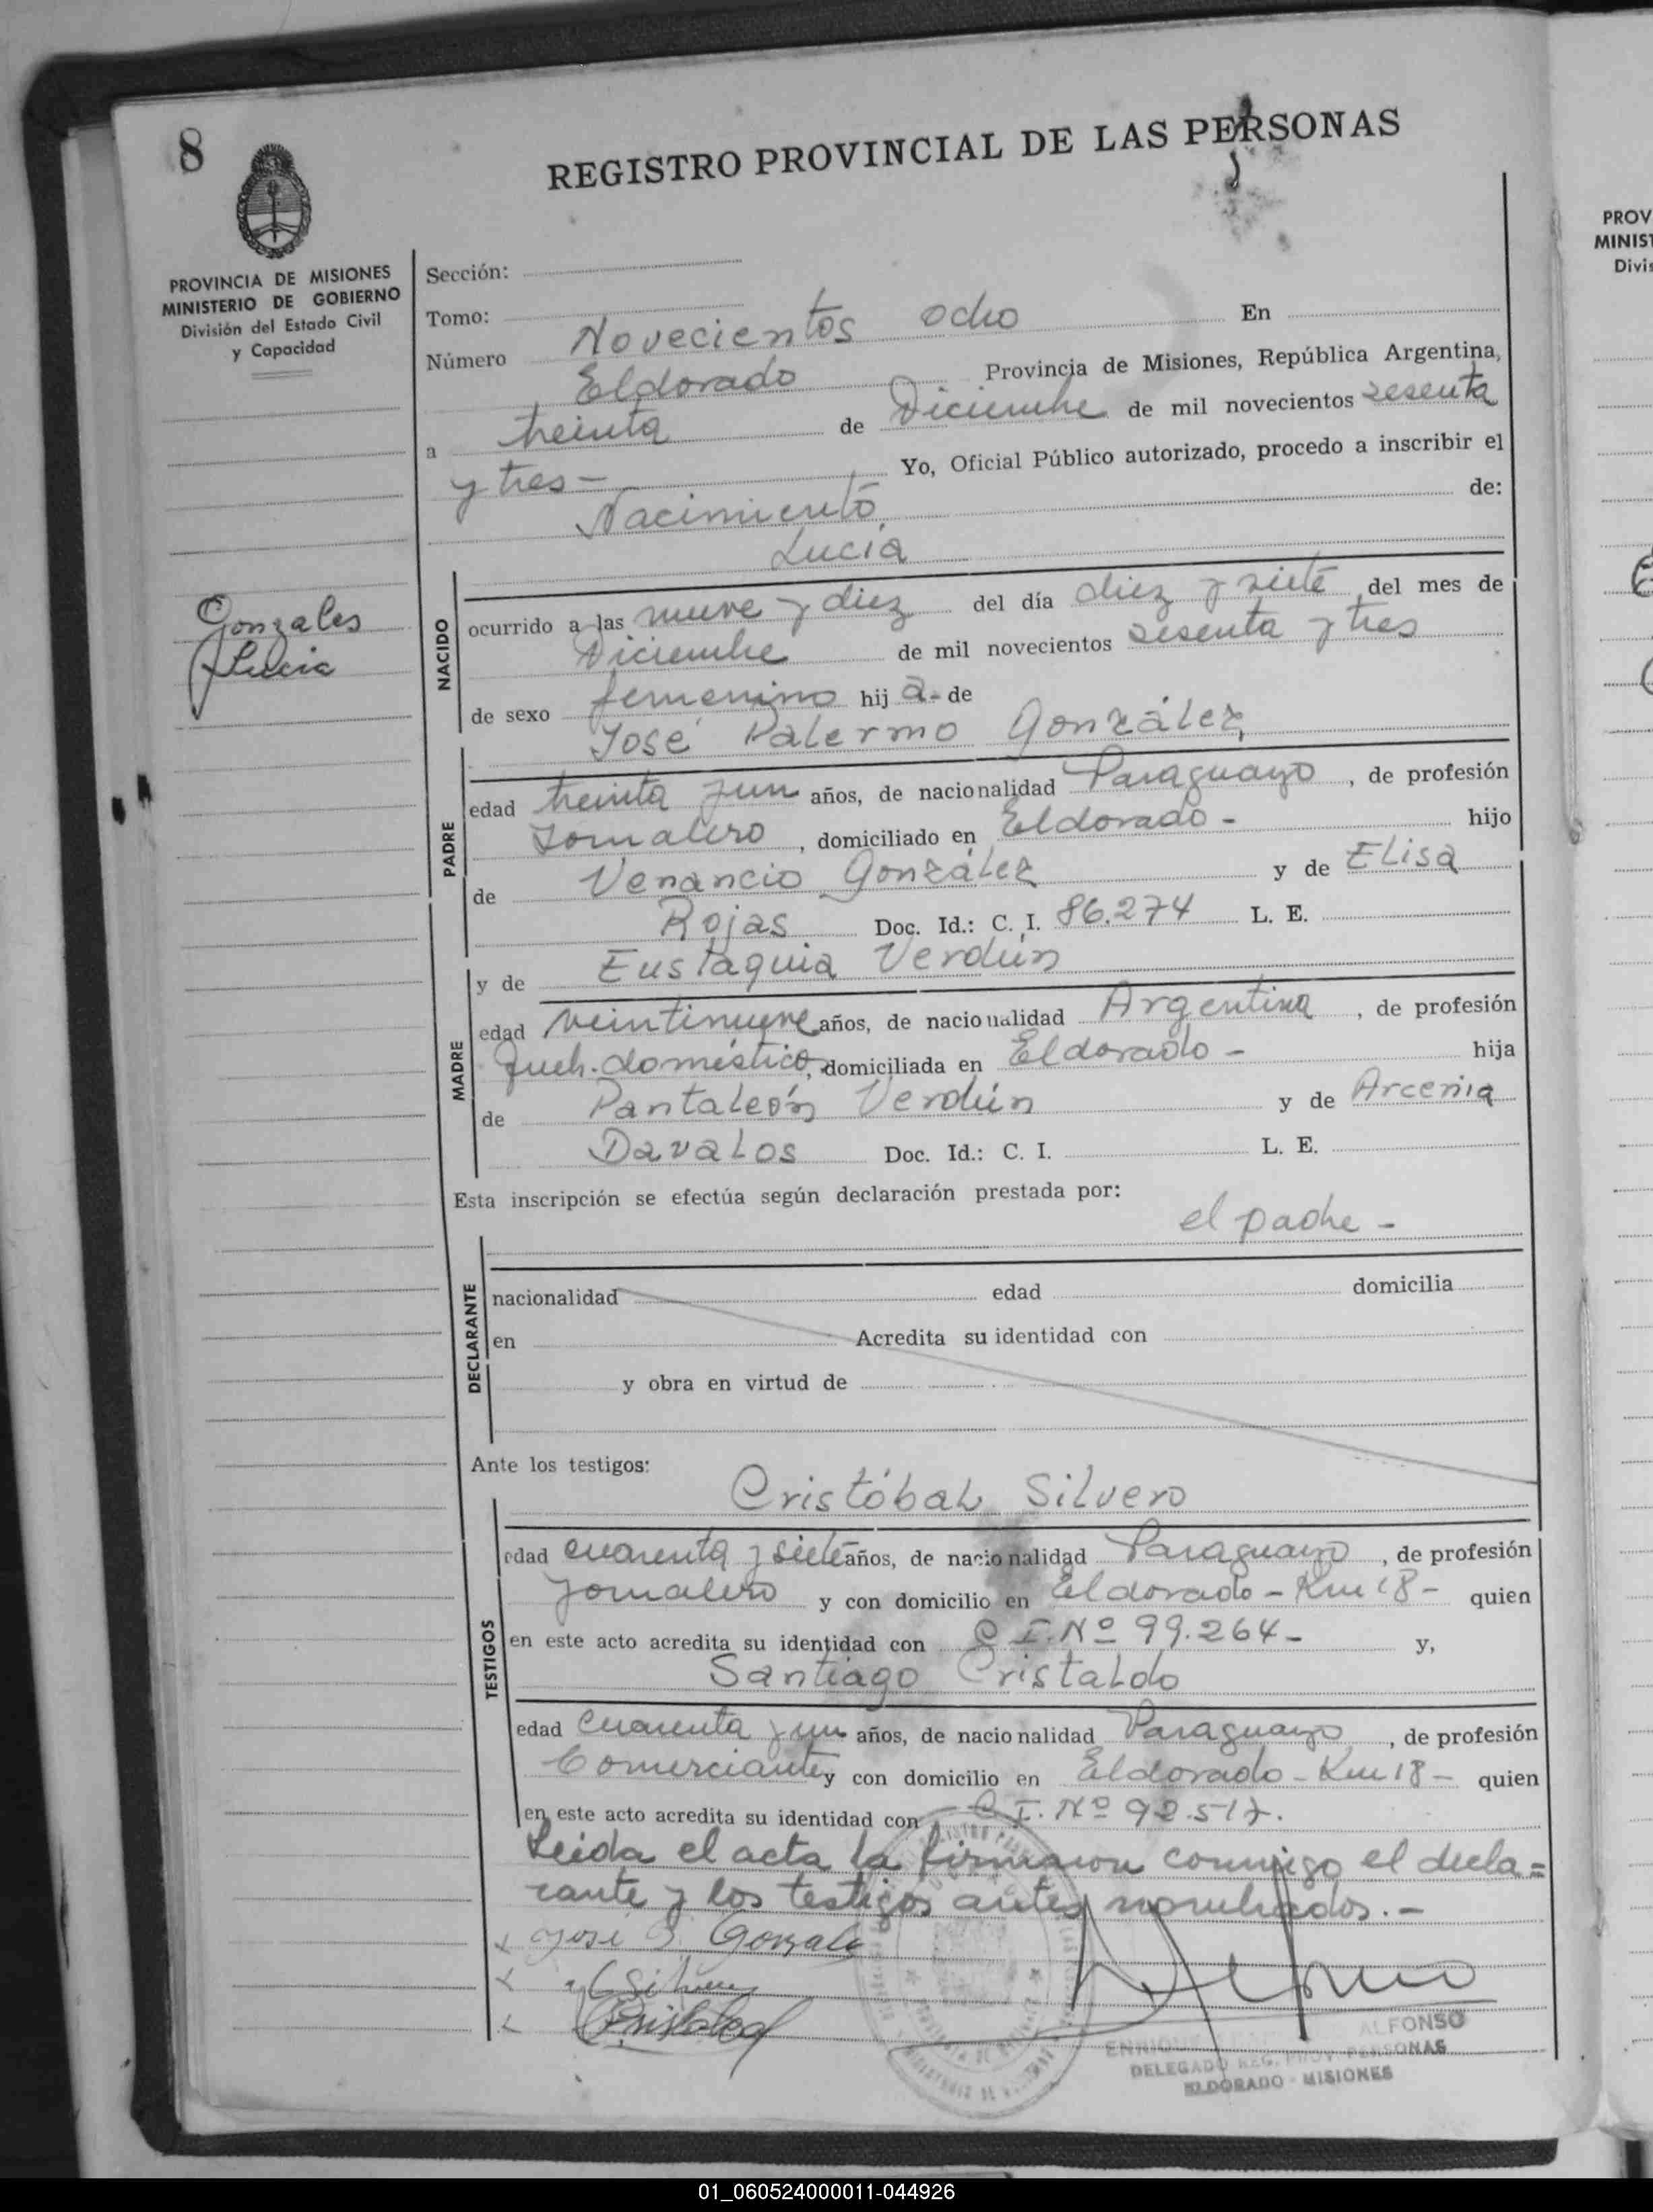 8
REGISTRO PROVINCIAL DE LAS PERSONAS
PROVINCIA DE MISIONES
MINISTERIO DE GOBIERNO
División del Estado Civil
y Capacidad
Gonzales
Lucia
Sección:
Tomo:
Número Novecientos ocho En
Eldorado Provincia de Misiones, República Argentina,
a treinta de Diciembre de mil novecientos sesenta
y tres - Yo, Oficial Público autorizado, procedo a inscribir el
Nacimiento de:
Lucia
NACIDO
ocurrido a las nueve y diez del día diez y siete del mes de
Diciembre de mil novecientos sesenta y tres
de sexo femenino hij a - de
José Palermo González
PADRE
edad treinta y un años, de nacionalidad Paraguayo, de profesión
Jornalero, domiciliado en Eldorado - hijo
de Venancio González y de Elisa
Rojas Doc. Id.: C. I. 86.274 L. E.
y de Eustaquia Verdún
MADRE
edad veintinueve años, de nacionalidad Argentina, de profesión
Queh. doméstico, domiciliada en Eldorado - hija
de Pantaleón Verdún y de Arcenia
Davalos Doc. Id.: C. I. L. E.
Esta inscripción se efectúa según declaración prestada por:
el padre -
DECLARANTE
nacionalidad edad domicilia
en Acredita su identidad con
y obra en virtud de
Ante los testigos:
Cristóbal Silvero
TESTIGOS
edad cuarenta y siete años, de nacionalidad Paraguayo, de profesión
Jornalero y con domicilio en Eldorado - Km 18 - quien
en este acto acredita su identidad con C.I. Nº 99.264 - y,
Santiago Cristaldo
edad cuarenta y un años, de nacionalidad Paraguayo, de profesión
Comerciante y con domicilio en Eldorado - Km 18 - quien
en este acto acredita su identidad con C.I. Nº 92.517.
Leida el acta la firmaron conmigo el decla=
rante y los testigos antes nombrados. -
x José P. Gonzale
x C Silvero
x Cristaldo
ENRIQUE ALFONSO
DELEGADO REG. PROV. PERSONAS
ELDORADO - MISIONES
PROV
MINIST
Divis
01_060524000011-044926